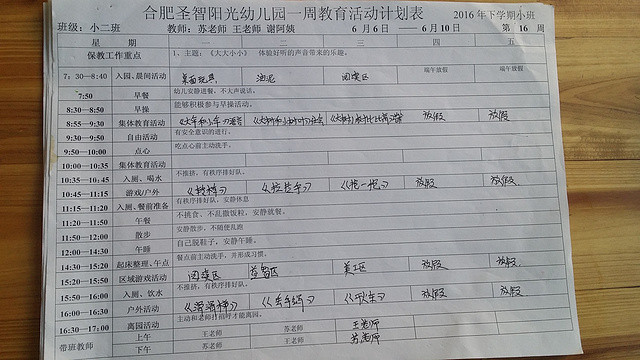 合肥圣智阳光幼儿园一周教育活动计划表 2016 年下学期小班
班级：小二班 教师：苏老师 王老师 谢阿姨 6 月 6 日 —— 6 月 10 日 第 16 周
星 期 一 二 三 四 五
保教工作重点 1、主题：《大大小小》 体验好听的声音带来的乐趣。
7：30—8:40 入园、晨间活动 桌面玩具 油泥 阅读区 端午放假 端午放假
7:50 早餐 幼儿安静进餐、不大声说话。
8:30—8:50 早操 能够积极参与早操活动。
8:55—9:30 集体教育活动 放假 放假
9:30—9:50 自由活动 有安全意识的进行。
9:50—10:00 点心 吃点心前主动洗手。
10:00—10:35 集体教育活动
10:35—10:45 入厕、喝水 不推挤，有秩序排好队。
10:45—11:15 游戏/户外 放假 放假
11:15—11:20 入厕、餐前准备 有秩序排好队，安静休息
11:20—11:50 午餐 不挑食、不乱撒饭粒，安静就餐。
11:50—12:00 散步 安静散步，不随便乱跑
12:00—14:30 午睡 自己脱鞋子，安静午睡。
14:30—15:20 起床整理、午点 餐点前主动洗手，并形成习惯。
15:20—15:50 区域游戏活动 阅读区 益智区 美工区 放假 放假
15:50—16:00 入厕、饮水 不推挤，有秩序排好队。
16:00—16:30 户外活动 《滑滑梯》 放假 放假
16:30—17:00 离园活动 主动和老师打招呼才能离园。
带班教师 上午 王老师 苏老师 王老师
下午 苏老师 王老师 苏老师